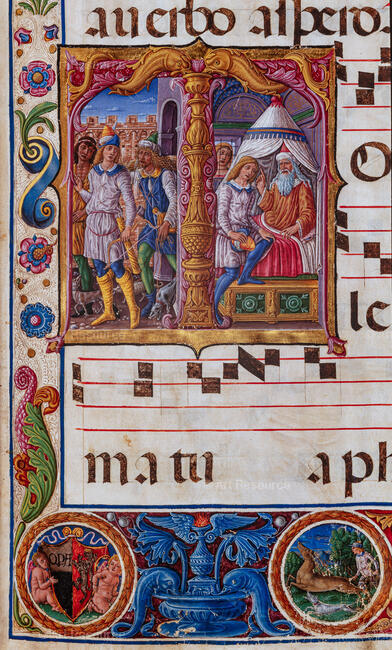 auerbo aſpero
O
le
matu aph
Art Resource